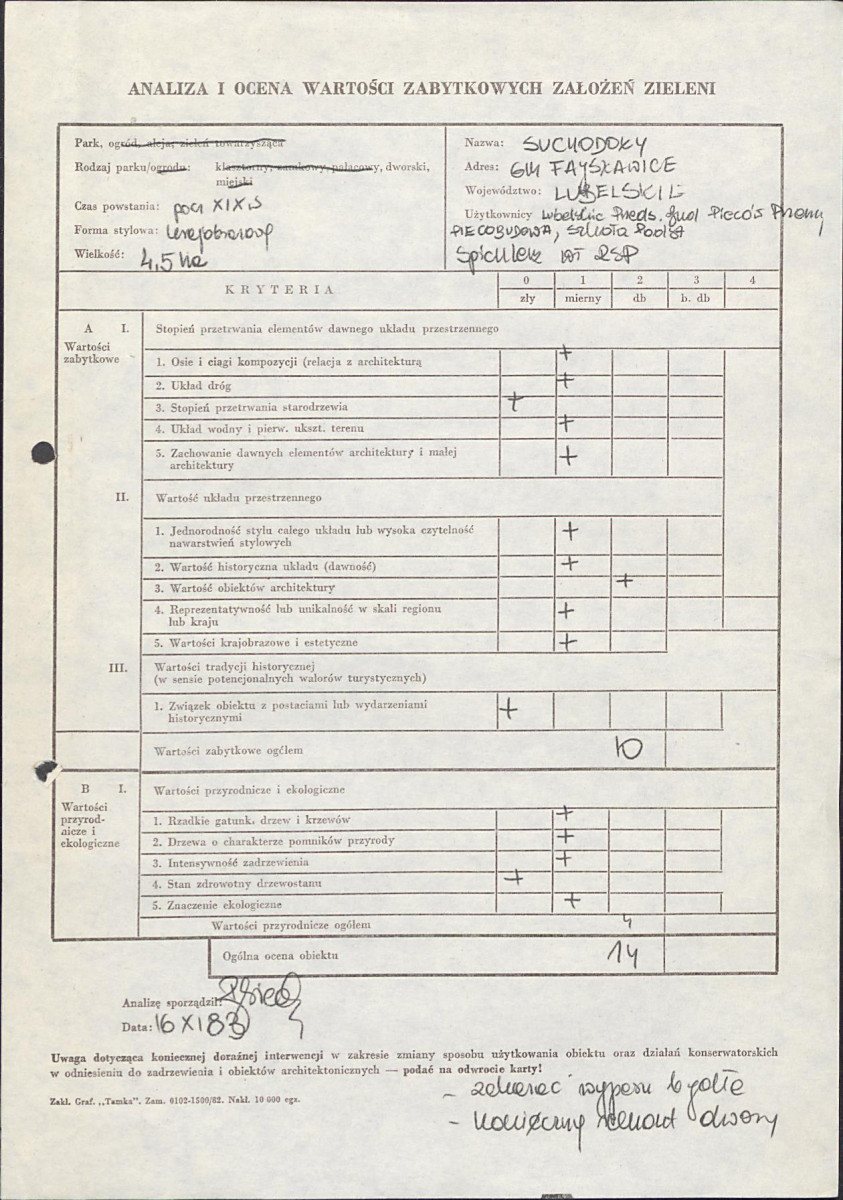 ANALIZA I OCENA WARTOŚCI ZABYTKOWYCH ZAŁOŻEŃ ZIELENI
Park, ogród, aleja, zieleń towarzysząca
Rodzaj parku/ogrodu: klasztorny, zamkowy, pałacowy, dworski,
miejski
Czas powstania: pocz XIX w
Forma stylowa: krajobrazowy
Wielkość: 4,5 ha
Nazwa: SUCHODOŁY
Adres: GM FAJSŁAWICE
Województwo: LUBELSKIE
Użytkownicy Lubelskie Przeds. Bud Pieców Przemy
PIECOBUDOWA, Szkoła Podst
Spichlerz RSP
KRYTERIA
0 1 2 3 4
zły mierny db b. db
A I. Stopień przetrwania elementów dawnego układu przestrzennego
Wartości
zabytkowe
1. Osie i ciągi kompozycji (relacja z architekturą +
2. Układ dróg +
3. Stopień przetrwania starodrzewia +
4. Układ wodny i pierw. ukszt. terenu +
5. Zachowanie dawnych elementów architektury i małej
architektury +
II. Wartość układu przestrzennego
1. Jednorodność stylu całego układu lub wysoka czytelność
nawarstwień stylowych +
2. Wartość historyczna układu (dawność) +
3. Wartość obiektów architektury +
4. Reprezentatywność lub unikalność w skali regionu
lub kraju +
5. Wartości krajobrazowe i estetyczne +
III. Wartości tradycji historycznej
(w sensie potencjonalnych walorów turystycznych)
1. Związek obiektu z postaciami lub wydarzeniami
historycznymi +
Wartości zabytkowe ogółem 10
B I. Wartości przyrodnicze i ekologiczne
Wartości
przyrod-
nicze i
ekologiczne
1. Rzadkie gatunk. drzew i krzewów +
2. Drzewa o charakterze pomników przyrody +
3. Intensywność zadrzewienia +
4. Stan zdrowotny drzewostanu +
5. Znaczenie ekologiczne +
Wartości przyrodnicze ogółem 4
Ogólna ocena obiektu 14
Analizę sporządził:
Data: 16 XI 83
Uwaga dotycząca koniecznej doraźnej interwencji w zakresie zmiany sposobu użytkowania obiektu oraz działań konserwatorskich
w odniesieniu do zadrzewienia i obiektów architektonicznych — podać na odwrocie karty!
Zakł. Graf. „Tamka". Zam. 0102-1500/82. Nakł. 10 000 egz.
- zakazać wypasu bydła
- konieczny remont dworu